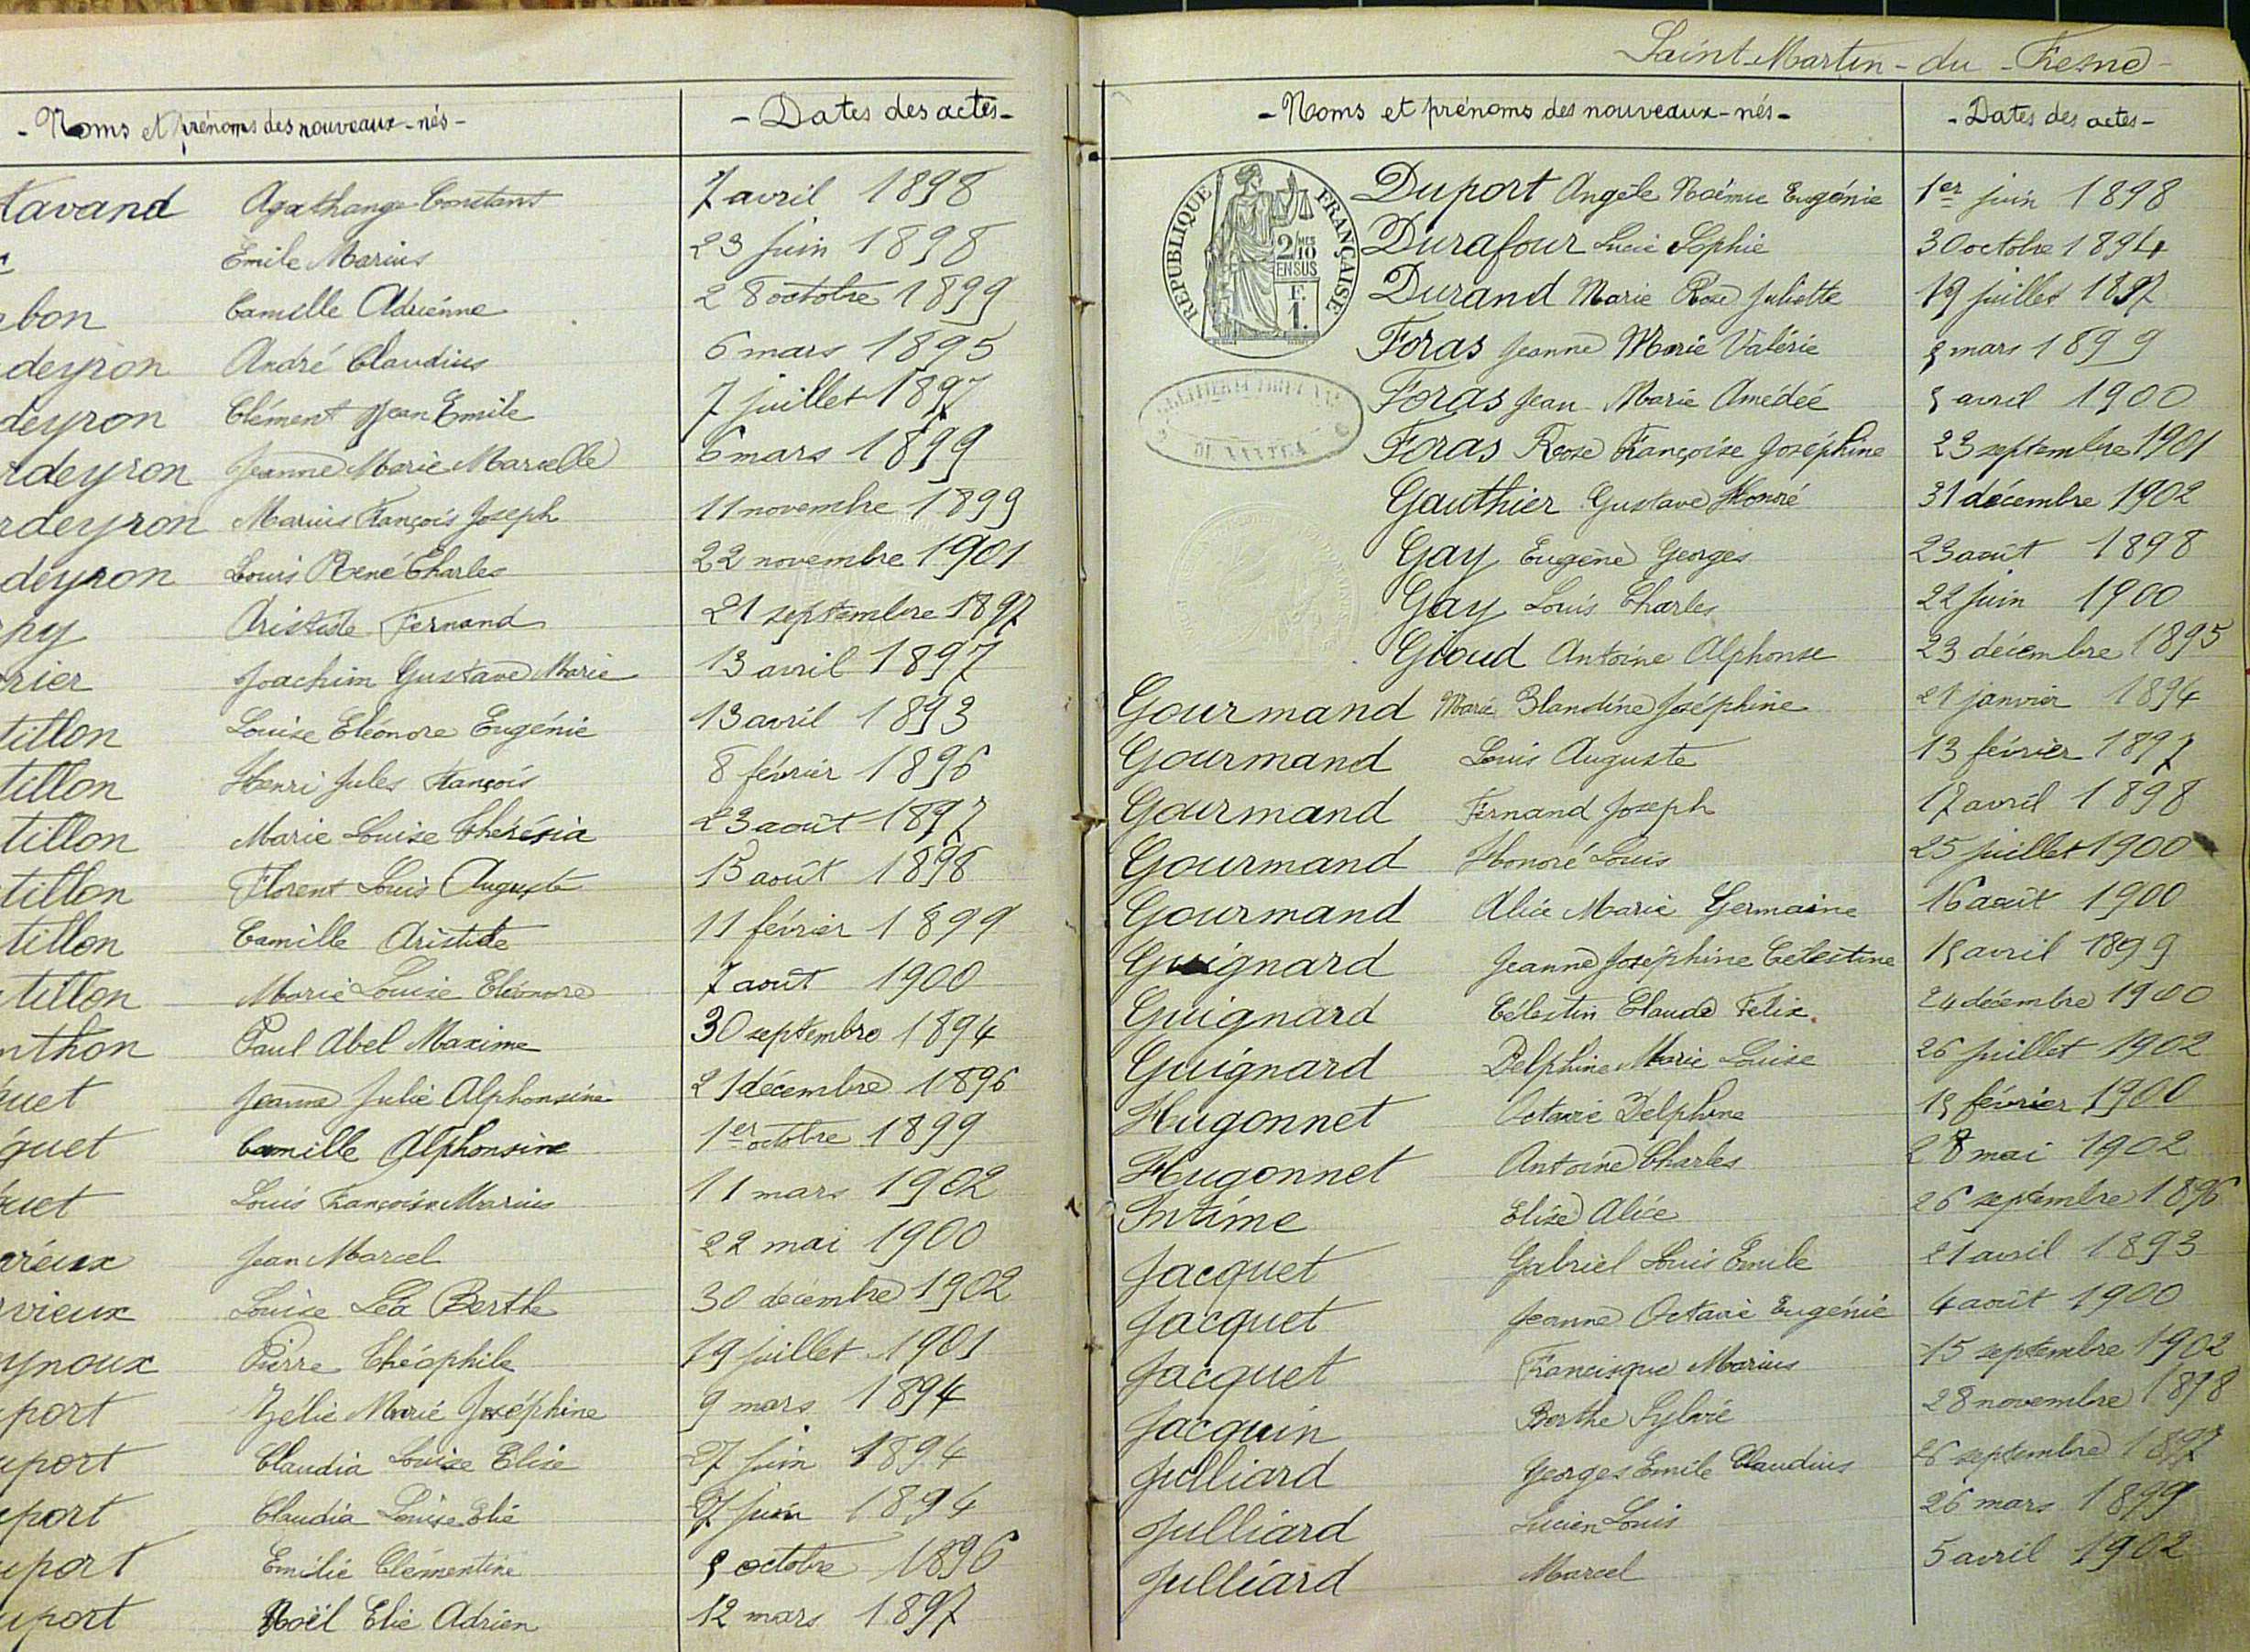 - Noms et prénoms des nouveaux-nés -
- Dates des actes -
tavand Agathange Constant 7 avril 1898
Emile Marius 23 juin 1898
bon Camille Adrienne 28 octobre 1899
deyron André Claudius 6 mars 1895
deyron Clément Jean Emile 7 juillet 1897
rdeyron Jeanne Marie Marcelle 6 mars 1899
rdeyron Marius François Joseph 11 novembre 1899
deyron Louis René Charles 22 novembre 1901
py Aristide Fernand 21 septembre 1897
rier Joachim Gustave Marie 13 avril 1897
tillon Louise Eléonore Eugénie 13 avril 1893
tillon Henri Jules François 8 février 1896
tillon Marie Louise Thérésia 23 août 1897
tillon Florent Louis Auguste 15 août 1898
tillon Camille Aristide 11 février 1899
tillon Marie Louise Eléonore 7 août 1900
nthon Paul Abel Maxime 30 septembre 1894
quet Jeanne Julie Alphonsine 21 décembre 1896
quet Camille Alphonsine 1er octobre 1899
quet Louis François Marius 11 mars 1902
reux Jean Marcel 22 mai 1900
rvieux Louise Léa Berthe 30 décembre 1902
ynoux Pierre Théophile 19 juillet 1901
port Zélie Marie Joséphine 9 mars 1894
uport Claudia Louise Elise 27 juin 1894
uport Claudia Louise Elie 27 juin 1894
uport Emilie Clémentine 5 octobre 1896
uport Noël Elie Adrien 12 mars 1897
Saint-Martin-du-Fresne-
- Noms et prénoms des nouveaux-nés -
- Dates des actes -
REPUBLIQUE FRANÇAISE
2/10MES
EN SUS
F.
1.
Duport Angèle Noémie Eugénie 1er juin 1898
Durafour Lucie Sophie 30 octobre 1894
Durand Marie Rose Juliette 19 juillet 1897
Foras Jeanne Marie Valérie 5 mars 1899
Foras Jean Marie Amédée 5 avril 1900
Foras Rose Françoise Joséphine 23 septembre 1901
Gauthier Gustave Honoré 31 décembre 1902
Gay Eugène Georges 23 août 1898
Gay Louis Charles 22 juin 1900
Gioud Antoine Alphonse 23 décembre 1895
Gourmand Marie Blandine Joséphine 21 janvier 1894
Gourmand Louis Auguste 13 février 1897
Gourmand Fernand Joseph 17 avril 1898
Gourmand Honoré Louis 25 juillet 1900
Gourmand Alice Marie Germaine 16 août 1900
Guignard Jeanne Joséphine Célestine 15 avril 1899
Guignard Célestin Claude Felix 24 décembre 1900
Guignard Delphine Marie Louise 26 juillet 1902
Hugonnet Octavie Delphine 15 février 1900
Hugonnet Antoine Charles 28 mai 1902
Intime Elise Alice 26 septembre 1896
Jacquet Gabriel Louis Emile 21 avril 1893
Jacquet Jeanne Octavie Eugénie 4 août 1900
Jacquet Francisque Marius 15 septembre 1902
Jacquin Berthe Sylvie 28 novembre 1898
Julliard Georges Emile Claudius 26 septembre 1897
Julliard Lucien Louis 26 mars 1899
Julliard Marcel 5 avril 1902